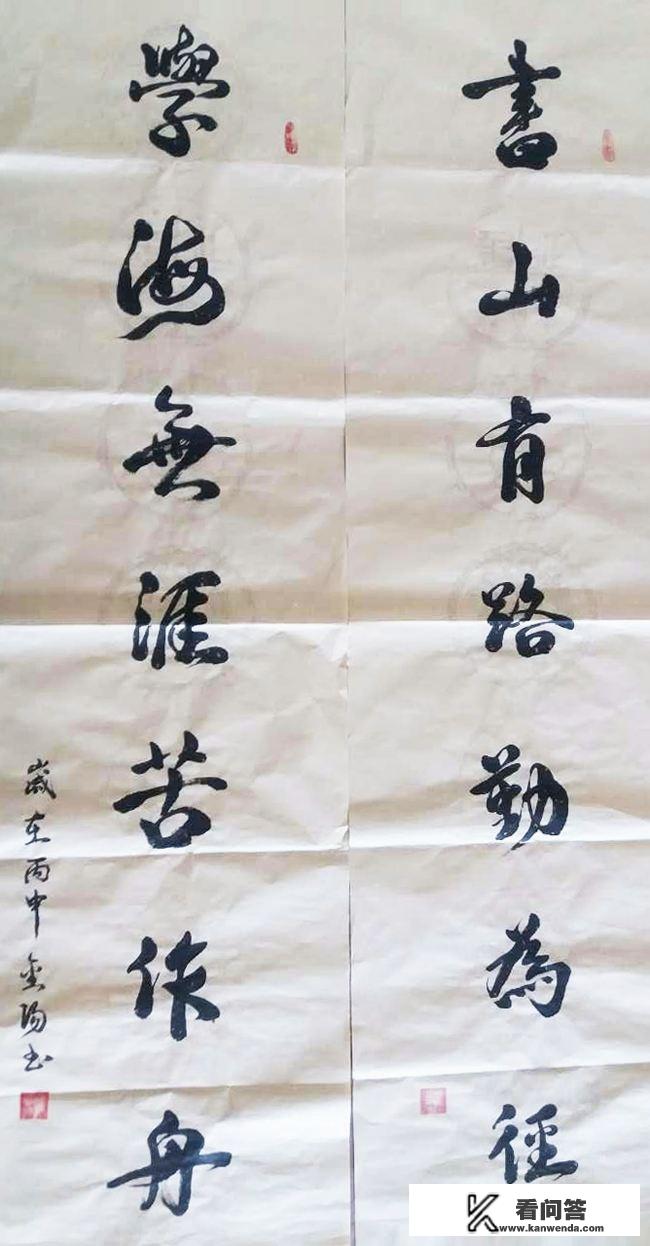 書山有路勤為徑
學海無涯苦作舟
歲在丙申金陽书
看问答
www.kanwenda.com